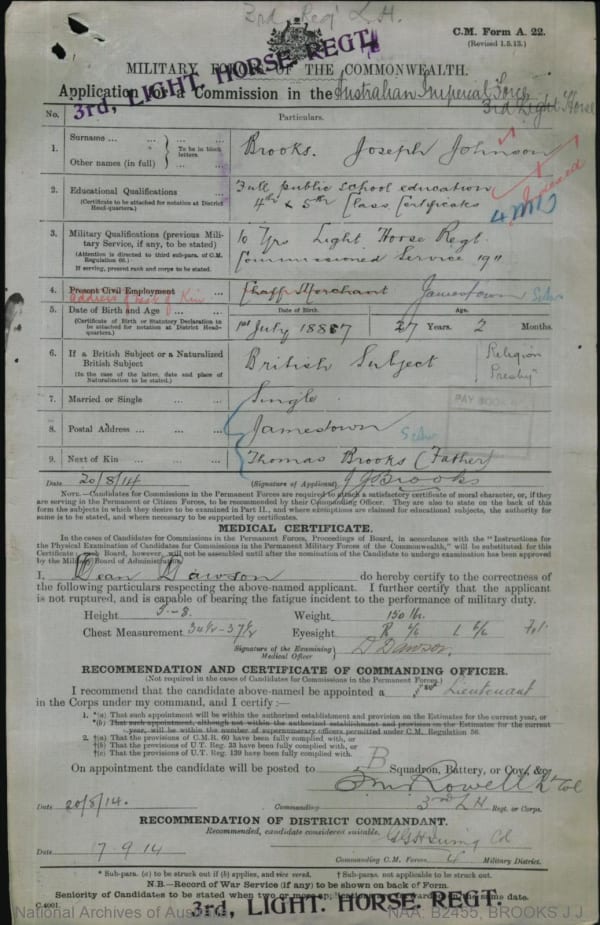 3rd Reg L.H.
C.M. Form A. 22.
(Revised 1.5.13.)
3rd, LIGHT. HORSE. REGT.
MILITARY FORCES OF THE COMMONWEALTH.
Application for a Commission in the Australian Imperial Force
3rd Light Horse
No. Particulars.
1. Surname ... ... To be in block letters. Brooks. Joseph Johnson
Other names (in full)
Indexed
2. Educational Qualifications ... ... Full public school education
(Certificate to be attached for notation at District Head-quarters.) 4th & 5th Class Certificates
4 MD
3. Military Qualifications (previous Military Service, if any, to be stated) 10 Yrs Light Horse Regt.
(Attention is directed to third sub-para. of C.M. Regulation 66.) Commissioned Service 1911
If serving, present rank and corps to be stated.
4. Present Civil Employment ... ... Chaff Merchant Jamestown
address of next of Kin
5. Date of Birth and Age ... ... Date of Birth. Age.
(Certificate of Birth or Statutory Declaration to be attached for notation at District Head-quarters.) 1st July 1887 27 Years. 2 Months.
6. If a British Subject or a Naturalized British Subject British Subject Religion
(In the case of the latter, date and place of Naturalization to be stated.) Presby
7. Married or Single ... ... Single
PAY BOOK
8. Postal Address ... ... ... Jamestown
9. Next of Kin ... ... ... Thomas Brooks (Father)
Date 20/8/14 (Signature of Applicant) J J Brooks
NOTE.—Candidates for Commissions in the Permanent Forces are required to attach a satisfactory certificate of moral character, or, if they
are serving in the Permanent or Citizen Forces, to be recommended by their Commanding Officer. They are also to state on the back of this
form the subjects in which they desire to be examined in Part II., and where exemptions are claimed for educational subjects, the authority for
same is to be stated, and where necessary to be supported by certificates.
MEDICAL CERTIFICATE.
In the cases of Candidates for Commissions in the Permanent Forces, Proceedings of Board, in accordance with the "Instructions for
the Physical Examination of Candidates for Commissions in the Permanent Military Forces of the Commonwealth," will be substituted for this
Certificate. Such Board, however, will not be assembled until after the nomination of the Candidate to undergo examination has been approved
by the Military Board of Administration.
I, Dean Dawson do hereby certify to the correctness of
the following particulars respecting the above-named applicant. I further certify that the applicant
is not ruptured, and is capable of bearing the fatigue incident to the performance of military duty.
Height 5-8. Weight 150 lb.
Chest Measurement 34½-37½ Eyesight R 6/6 L 6/6
Signature of the Examining Medical Officer D Dawson.
RECOMMENDATION AND CERTIFICATE OF COMMANDING OFFICER.
(Not required in the cases of Candidates for Commissions in the Permanent Forces.)
I recommend that the candidate above-named be appointed a Lieutenant
in the Corps under my command, and I certify :—
1. *(a) That such appointment will be within the authorized establishment and provision on the Estimates for the current year, or
*(b) That such appointment, although not within the authorized establishment and provision on the Estimates for the current
year, will be within the number of supernumerary officers permitted under C.M. Regulation 56.
2. †(a) That the provisions of C.M.R. 60 have been fully complied with, or
†(b) That the provisions of U.T. Reg. 33 have been fully complied with, or
†(c) That the provisions of U.T. Reg. 139 have been fully complied with.
On appointment the candidate will be posted to B Squadron, Battery, or Coy., &c.
F m Rowell Lt Col
Date 20/8/14. Commanding 3rd L.H. Regt. or Corps.
RECOMMENDATION OF DISTRICT COMMANDANT.
Recommended, candidate considered suitable.
Col
Date 17.9.14 Commanding C.M. Forces, 4 Military District.
* Sub-paras. (a) to be struck out if (b) applies, and vice versâ. † Sub-paras. not applicable to be struck out.
N.B.—Record of War Service (if any) to be shown on back of Form.
Seniority of Candidates to be stated when two or more applications are forwarded on the same date.
C.4001.
3rd, LIGHT. HORSE. REGT.
National Archives of Australia NAA: B2455, BROOKS J J